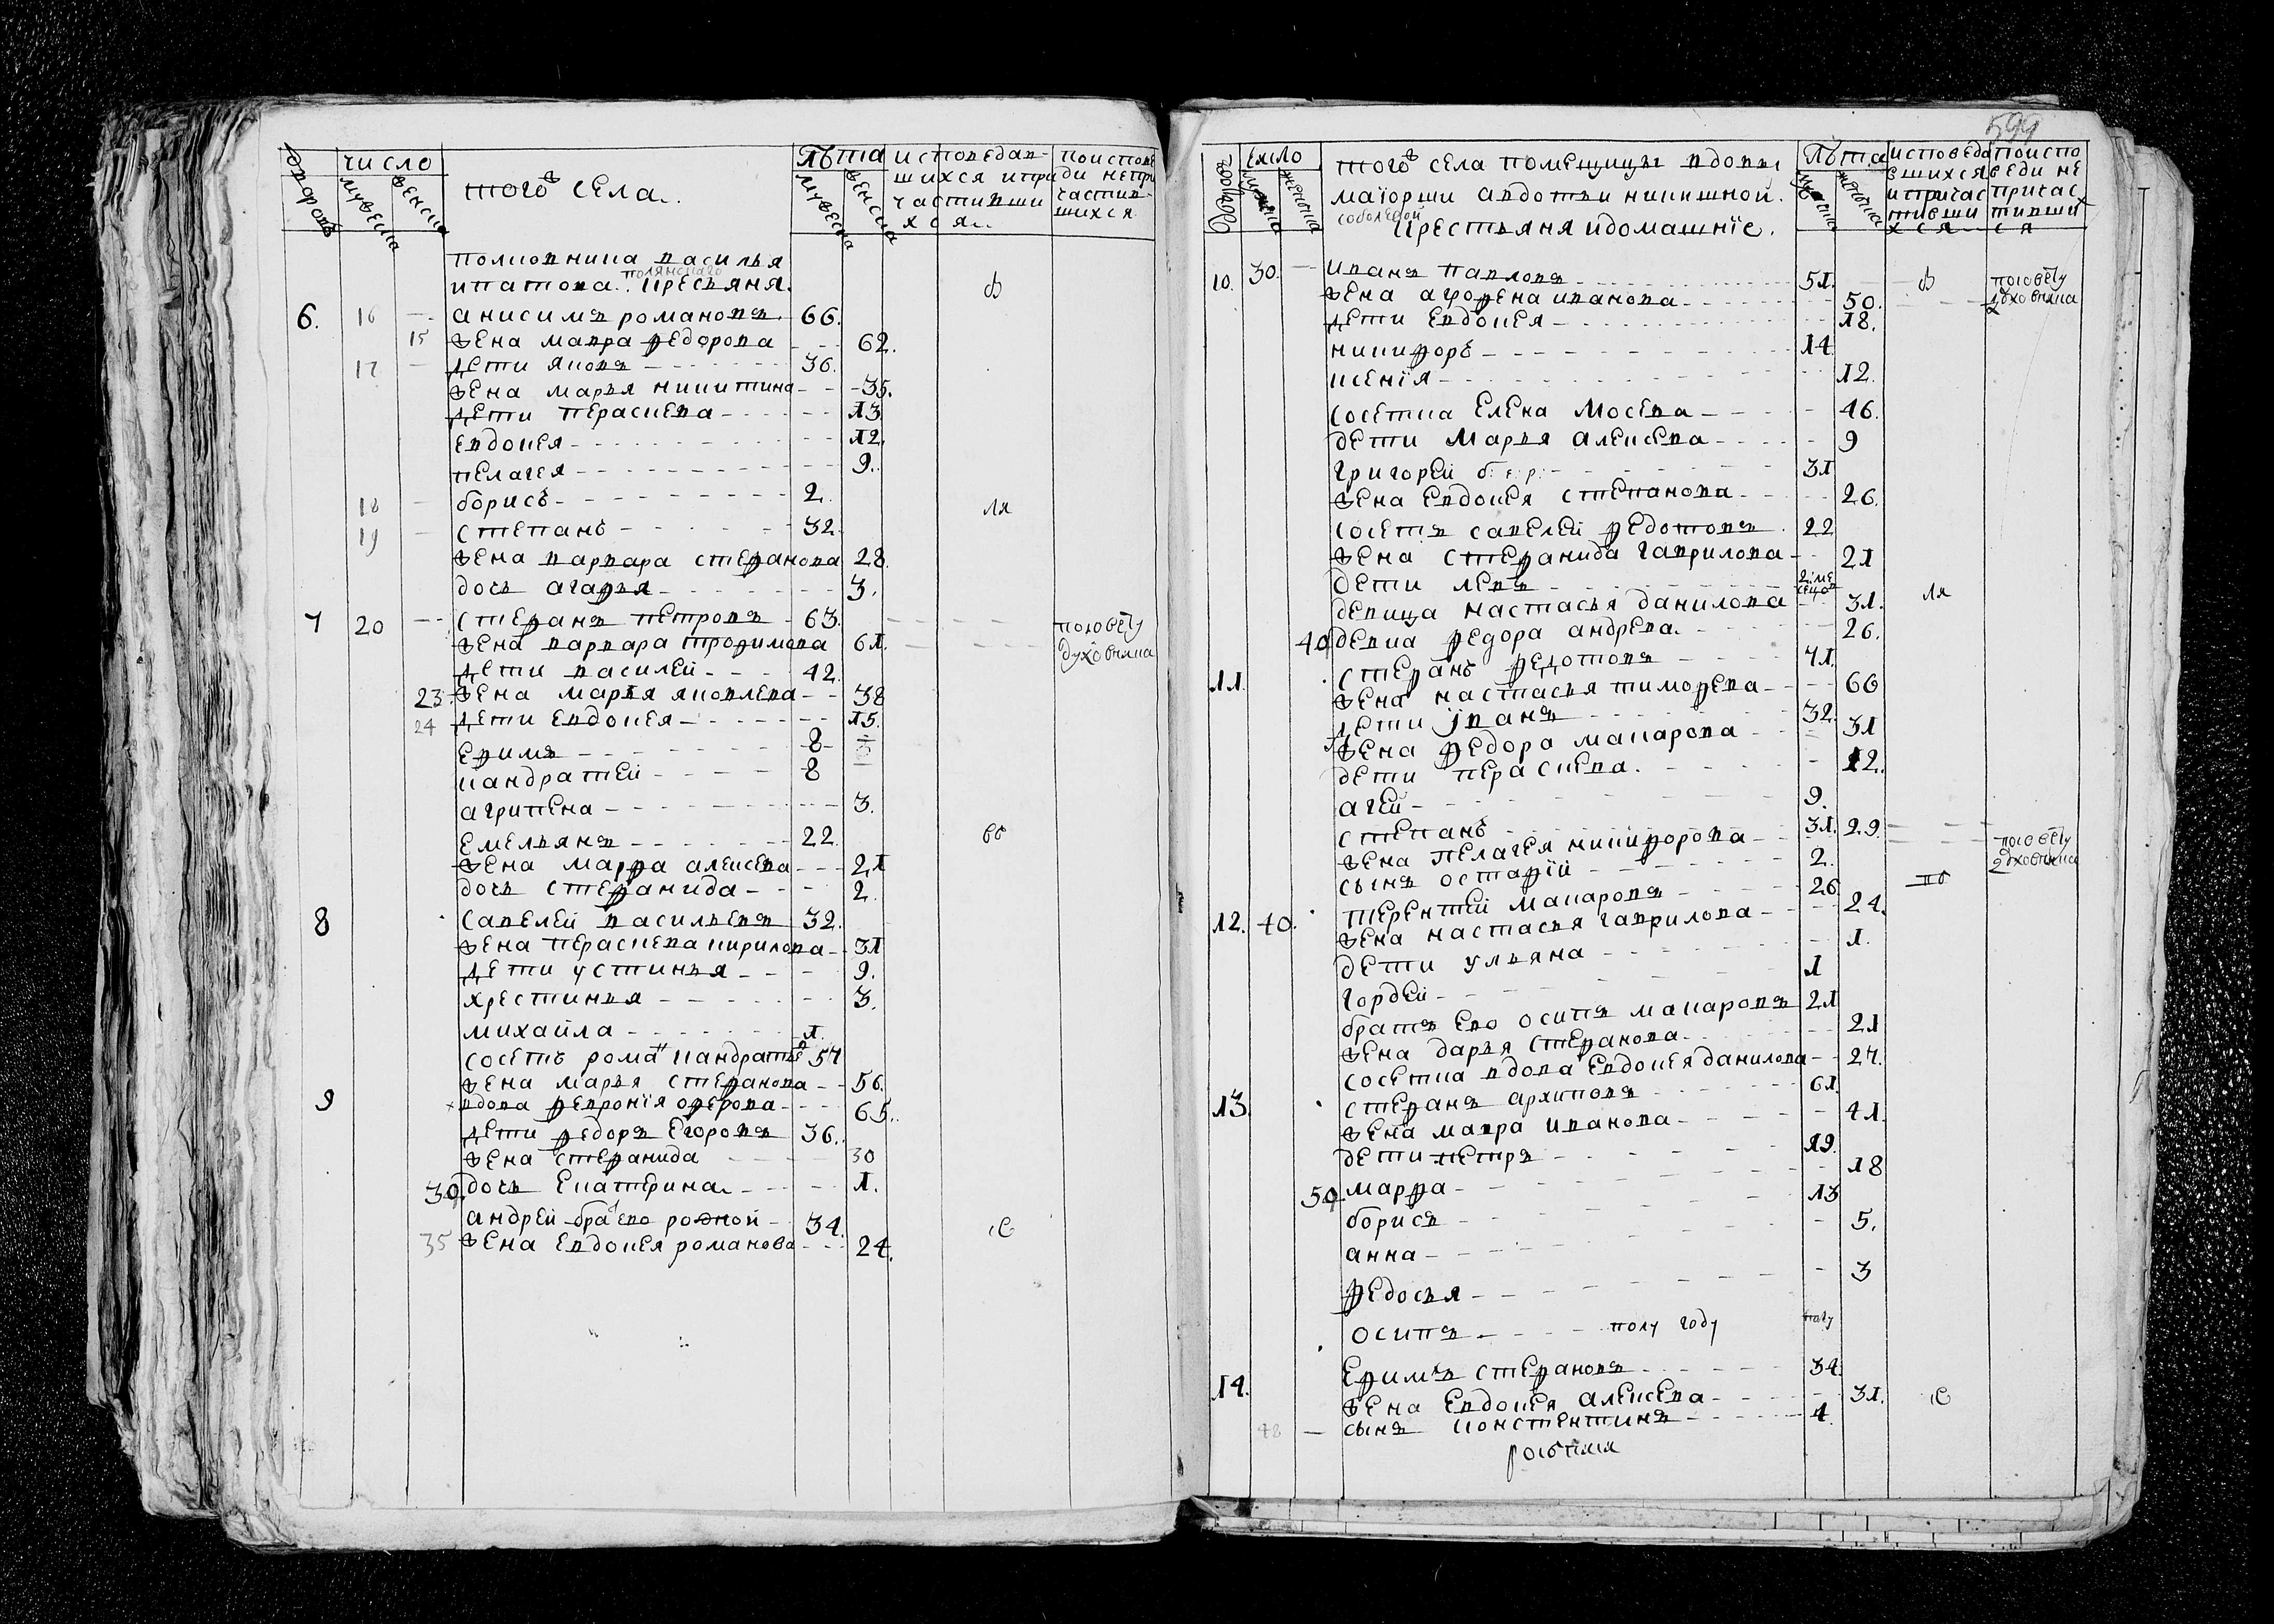 число
лѣта
исповедав-
шихся и при
частивши
хся
поиспове
ди непри
частив-
шихся
дворовъ
мужеска
женска
мужеска
женска
того села
полковника василья
полянскаго
ипатова. крестьяня.
6. 16 — анисимъ романовъ 66.
15 жена мавра федорова 62.
17 — дети яковъ 36.
жена марья никитина 35.
дети пераскева 13
евдокея 12.
пелагея 9.
18 — борисъ 2.
19 — степанъ 32.
жена варвара стефанова 28.
дочь агафья 3.
7 20 — стефанъ петровъ 63.
посовету
жена варвара трофимова 61.
духовника
дети василей 42.
23. жена марья яковлева 38
24 дети евдокея 15.
ефимъ 8
кандратей 8
агрипена 3.
емельянъ 22.
жена марфа алексева 21
дочь стефанида 2.
8 савелей васильевъ 32.
жена пераскева кирилова 31
дети устинья 9.
хрестинья 3.
михайла 1.
сосетъ рома кандратьв 57
жена марья стефанова 56.
9 вдова февронія оферова 65.
дети федоръ егоровъ 36.
жена стефанида 30
30. дочь екатерина 1.
андрей бра ево родной 34.
35 жена евдокея романова 24.
599
число
того села помещицы вдовы
маіорши авдотьи никишной.
соболевой
крестьяня идомашніе.
лѣта
исповеда
вшихся
и причас
тивши
хся
поиспо
веди не
причас
тивши
ся
10. 30. — иванъ павловъ 51.
посовету
жена агрофена иванова 50.
духовника
дети евдокея 18.
никифоръ 14
ксенія 12.
сосетка елена мосева 46.
дети марья алексева 9
григорей 31
жена евдокея степанова 26.
сосетъ савелей федотовъ 22
жена стефанида гаврилова 21
дети левъ 2 ме
сецов
девица настасья данилова 31.
40 девка федора андрева 26.
11. стефанъ федотовъ 71.
жена настасья тимофева 60
дети іванъ 32.
жена федора макарова 31
дети пераскева 12.
агей 9.
степанъ 31.
жена пелагея никифорова 29
посовету
духовника
сынъ остафій 2.
12. 40. терентей макаровъ 26
жена настасья гаврилова 24.
дети ульяна 1.
гордей 1
братъ ево осипъ макаровъ 21
жена дарья стефанова 21
сосетка вдова евдокея данилова 27.
13. стефанъ архиповъ 61.
жена мавра иванова 41.
дети петръ 19.
50. марфа 18
борисъ 13
анна 5.
федосья 3
осипъ полу году полу
14. ефимъ стефановъ 34
жена евдокея алексева 31.
48 — сынъ констентинъ 4.